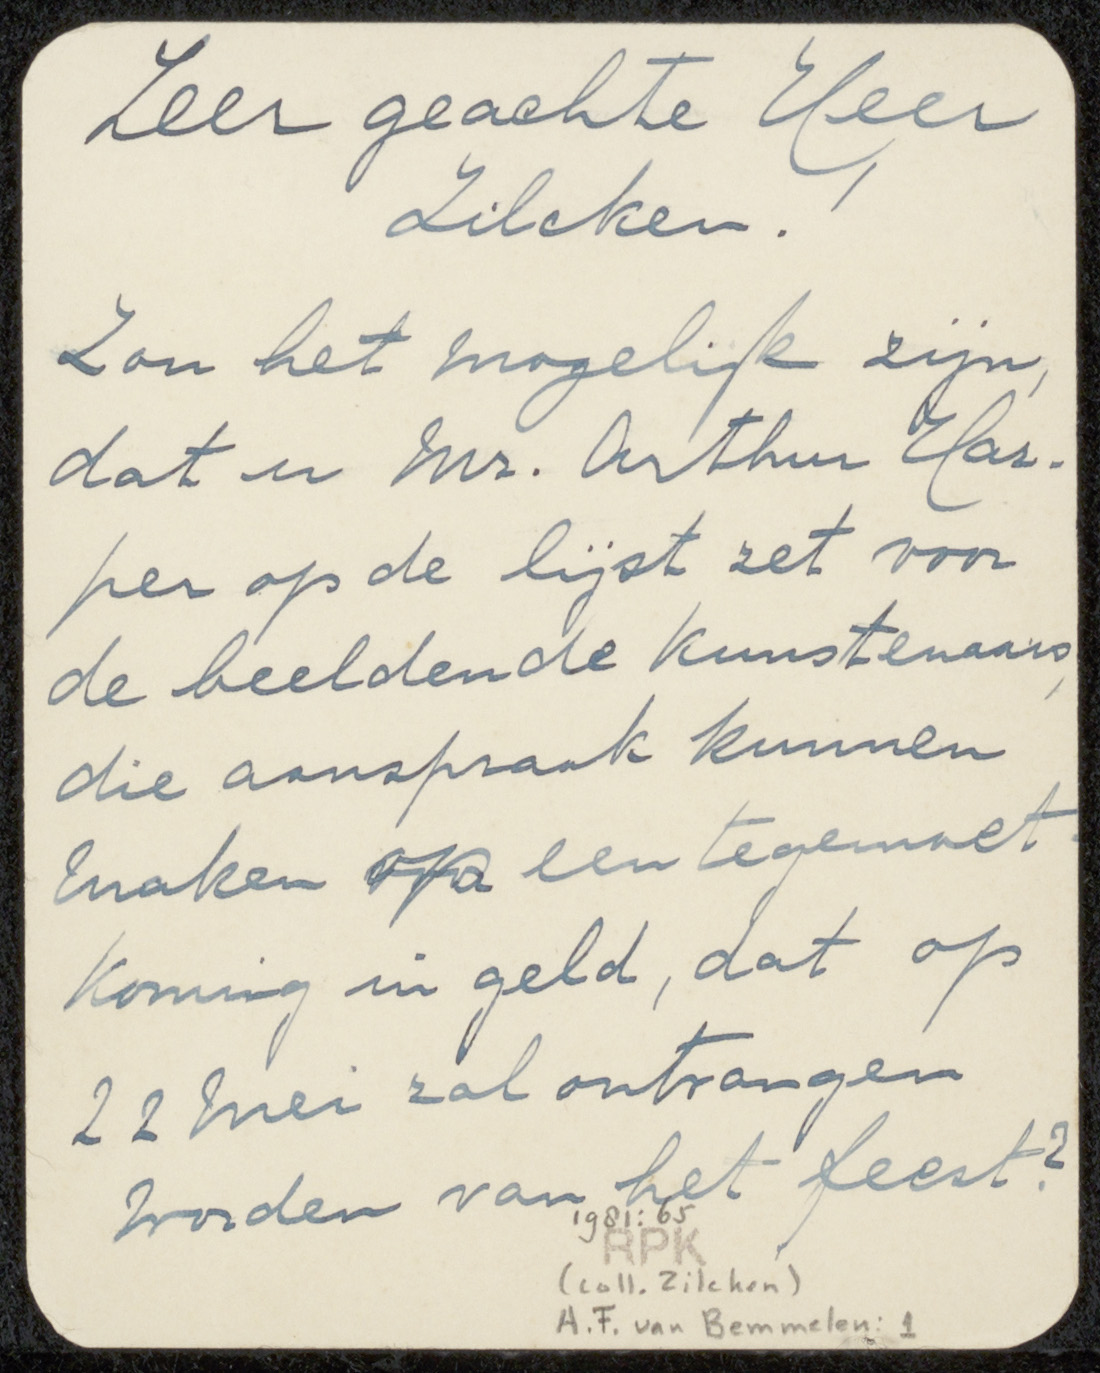 Zeer geachte Heer
Zilcken!
Zou het mogelijk zijn,
dat u Mr. Arthur Har-
per op de lijst zet voor
de beeldende kunstenaars,
die aanspraak kunnen
maken op een tegemoet-
koming in geld, dat op
22 Mei zal ontvangen
worden van het feest?
1981:65
RPK
(coll. Zilcken)
A.F. van Bemmelen: 1